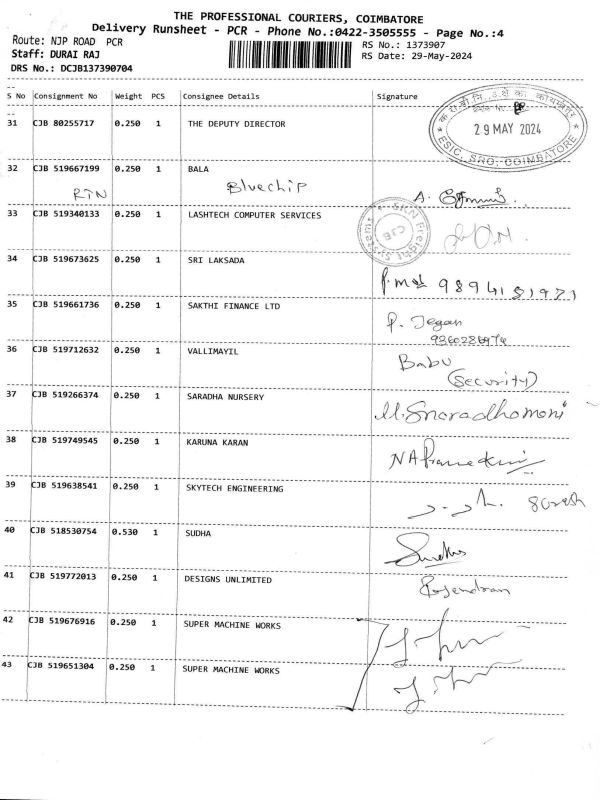 THE PROFESSIONAL COURIERS, COIMBATORE
Delivery Runsheet - PCR - Phone No.:0422-3505555 - Page No.:4
Route: NJP ROAD PCR
RS No.: 1373907
Staff: DURAI RAJ
RS Date: 29-May-2024
DRS No.: DCJB137390704
S No Consignment No Weight PCS Consignee Details Signature
31 CJB 80255717 0.250 1 THE DEPUTY DIRECTOR
29 MAY 2024
ESIC, SRO, COIMBATORE
32 CJB 519667199 0.250 1 BALA
RTN Bluechip A.
33 CJB 519340133 0.250 1 LASHTECH COMPUTER SERVICES
SKN Freight Systems
CJB
34 CJB 519673625 0.250 1 SRI LAKSADA
35 CJB 519661736 0.250 1 SAKTHI FINANCE LTD
P. Jegan
36 CJB 519712632 0.250 1 VALLIMAYIL
Babu
(Security)
37 CJB 519266374 0.250 1 SARADHA NURSERY
38 CJB 519749545 0.250 1 KARUNA KARAN
39 CJB 519638541 0.250 1 SKYTECH ENGINEERING
Suresh
40 CJB 518530754 0.530 1 SUDHA
41 CJB 519772013 0.250 1 DESIGNS UNLIMITED
42 CJB 519676916 0.250 1 SUPER MACHINE WORKS
43 CJB 519651304 0.250 1 SUPER MACHINE WORKS